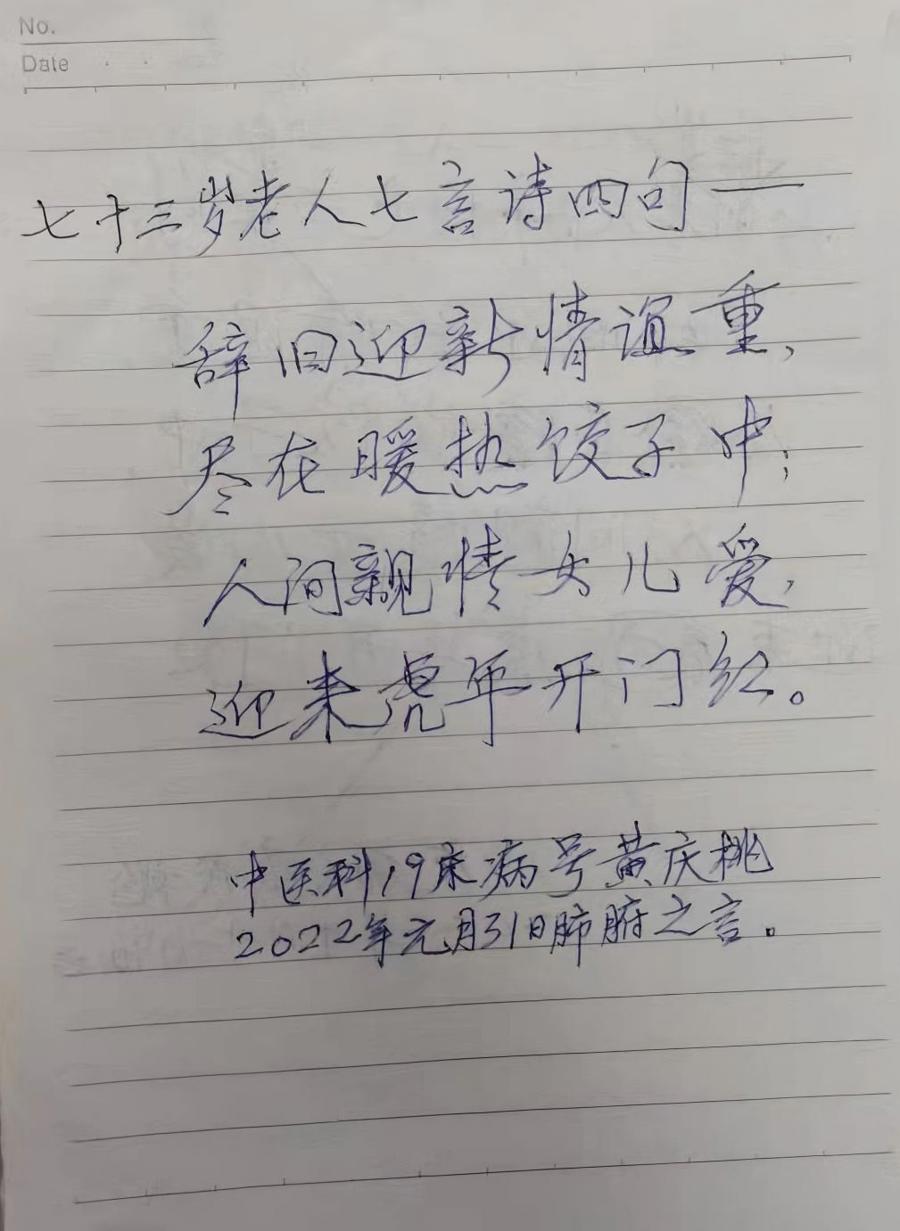 No.
Date
七十三岁老人七言诗四句——
辞旧迎新情谊重,
尽在暖热饺子中;
人间亲情女儿爱,
迎来虎年开门红。
中医科19床病号黄庆桃
2022年元月31日肺腑之言。